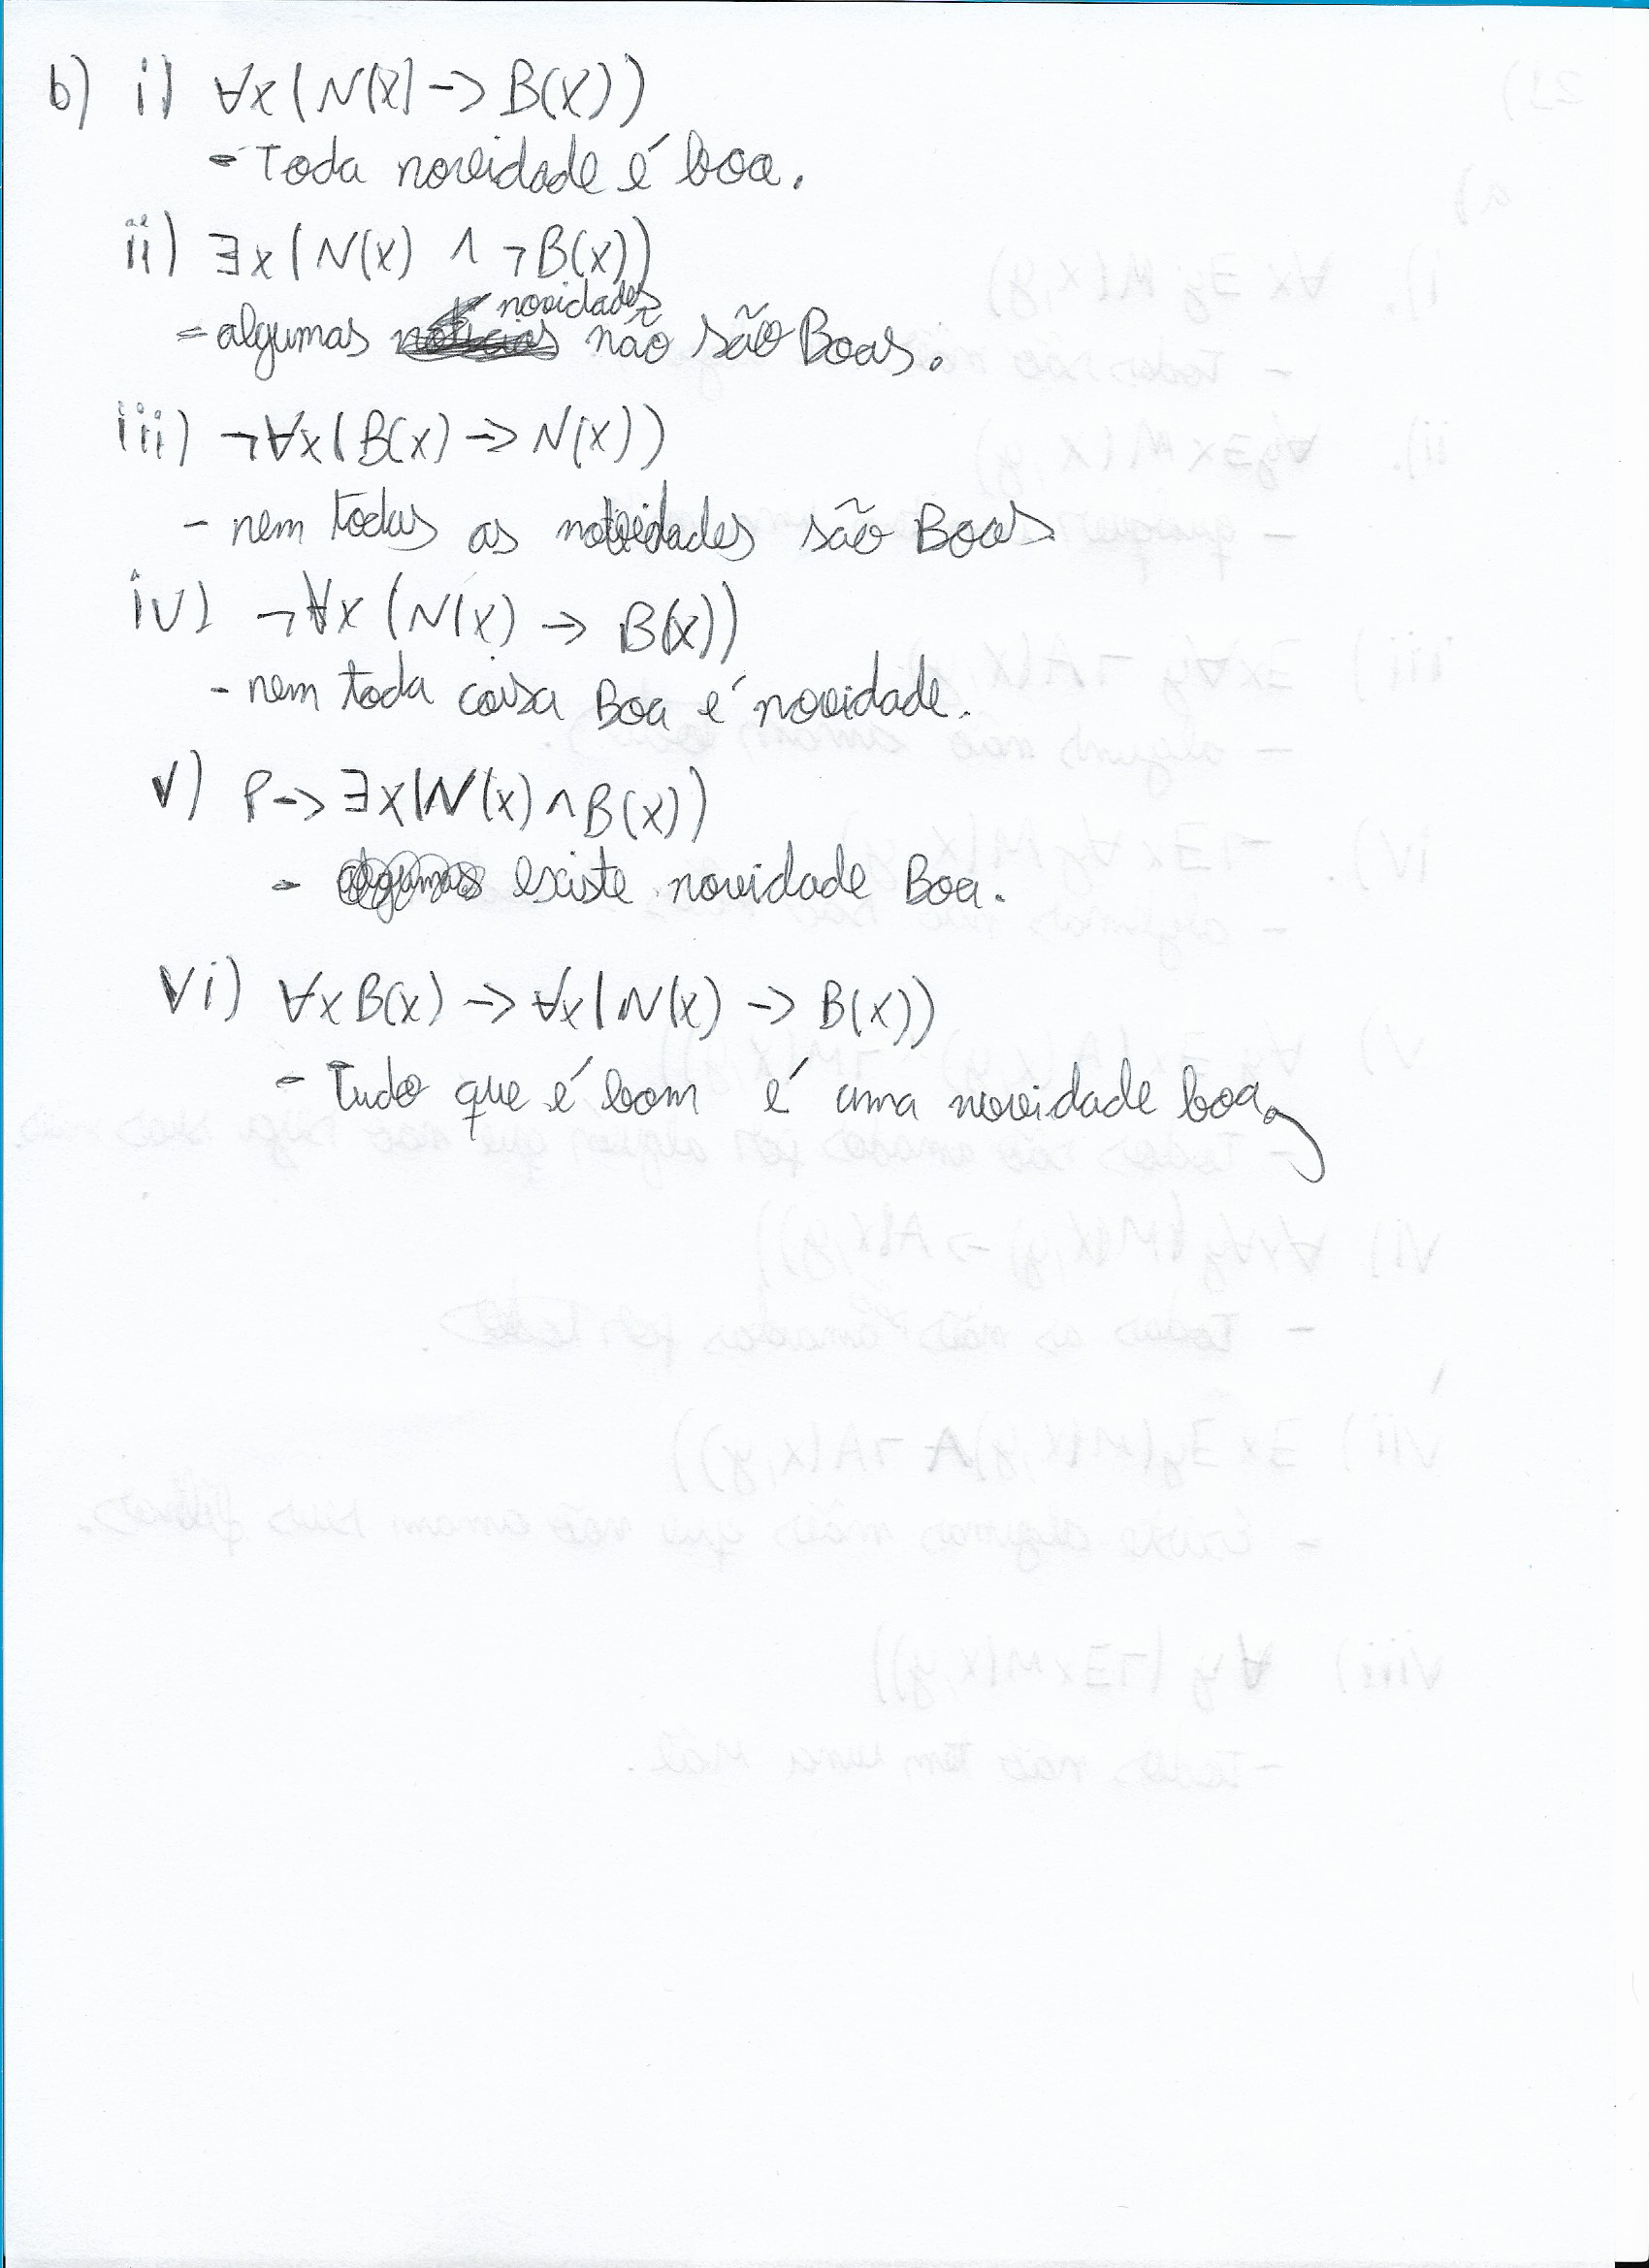 b) i) ∀x(N(x) -> B(x))
- Toda novidade é boa.
ii) ∃x(N(x) ∧ ¬B(x))
- algumas novidades não são Boas.
iii) ¬∀x(B(x) -> N(x))
- nem todas as novidades são Boas
iv) ¬∀x (N(x) -> B(x))
- nem toda coisa Boa é novidade.
v) P -> ∃x(N(x) ∧ B(x))
- existe novidade Boa.
vi) ∀x B(x) -> ∀x(N(x) -> B(x))
- Tudo que é bom é uma novidade boa.